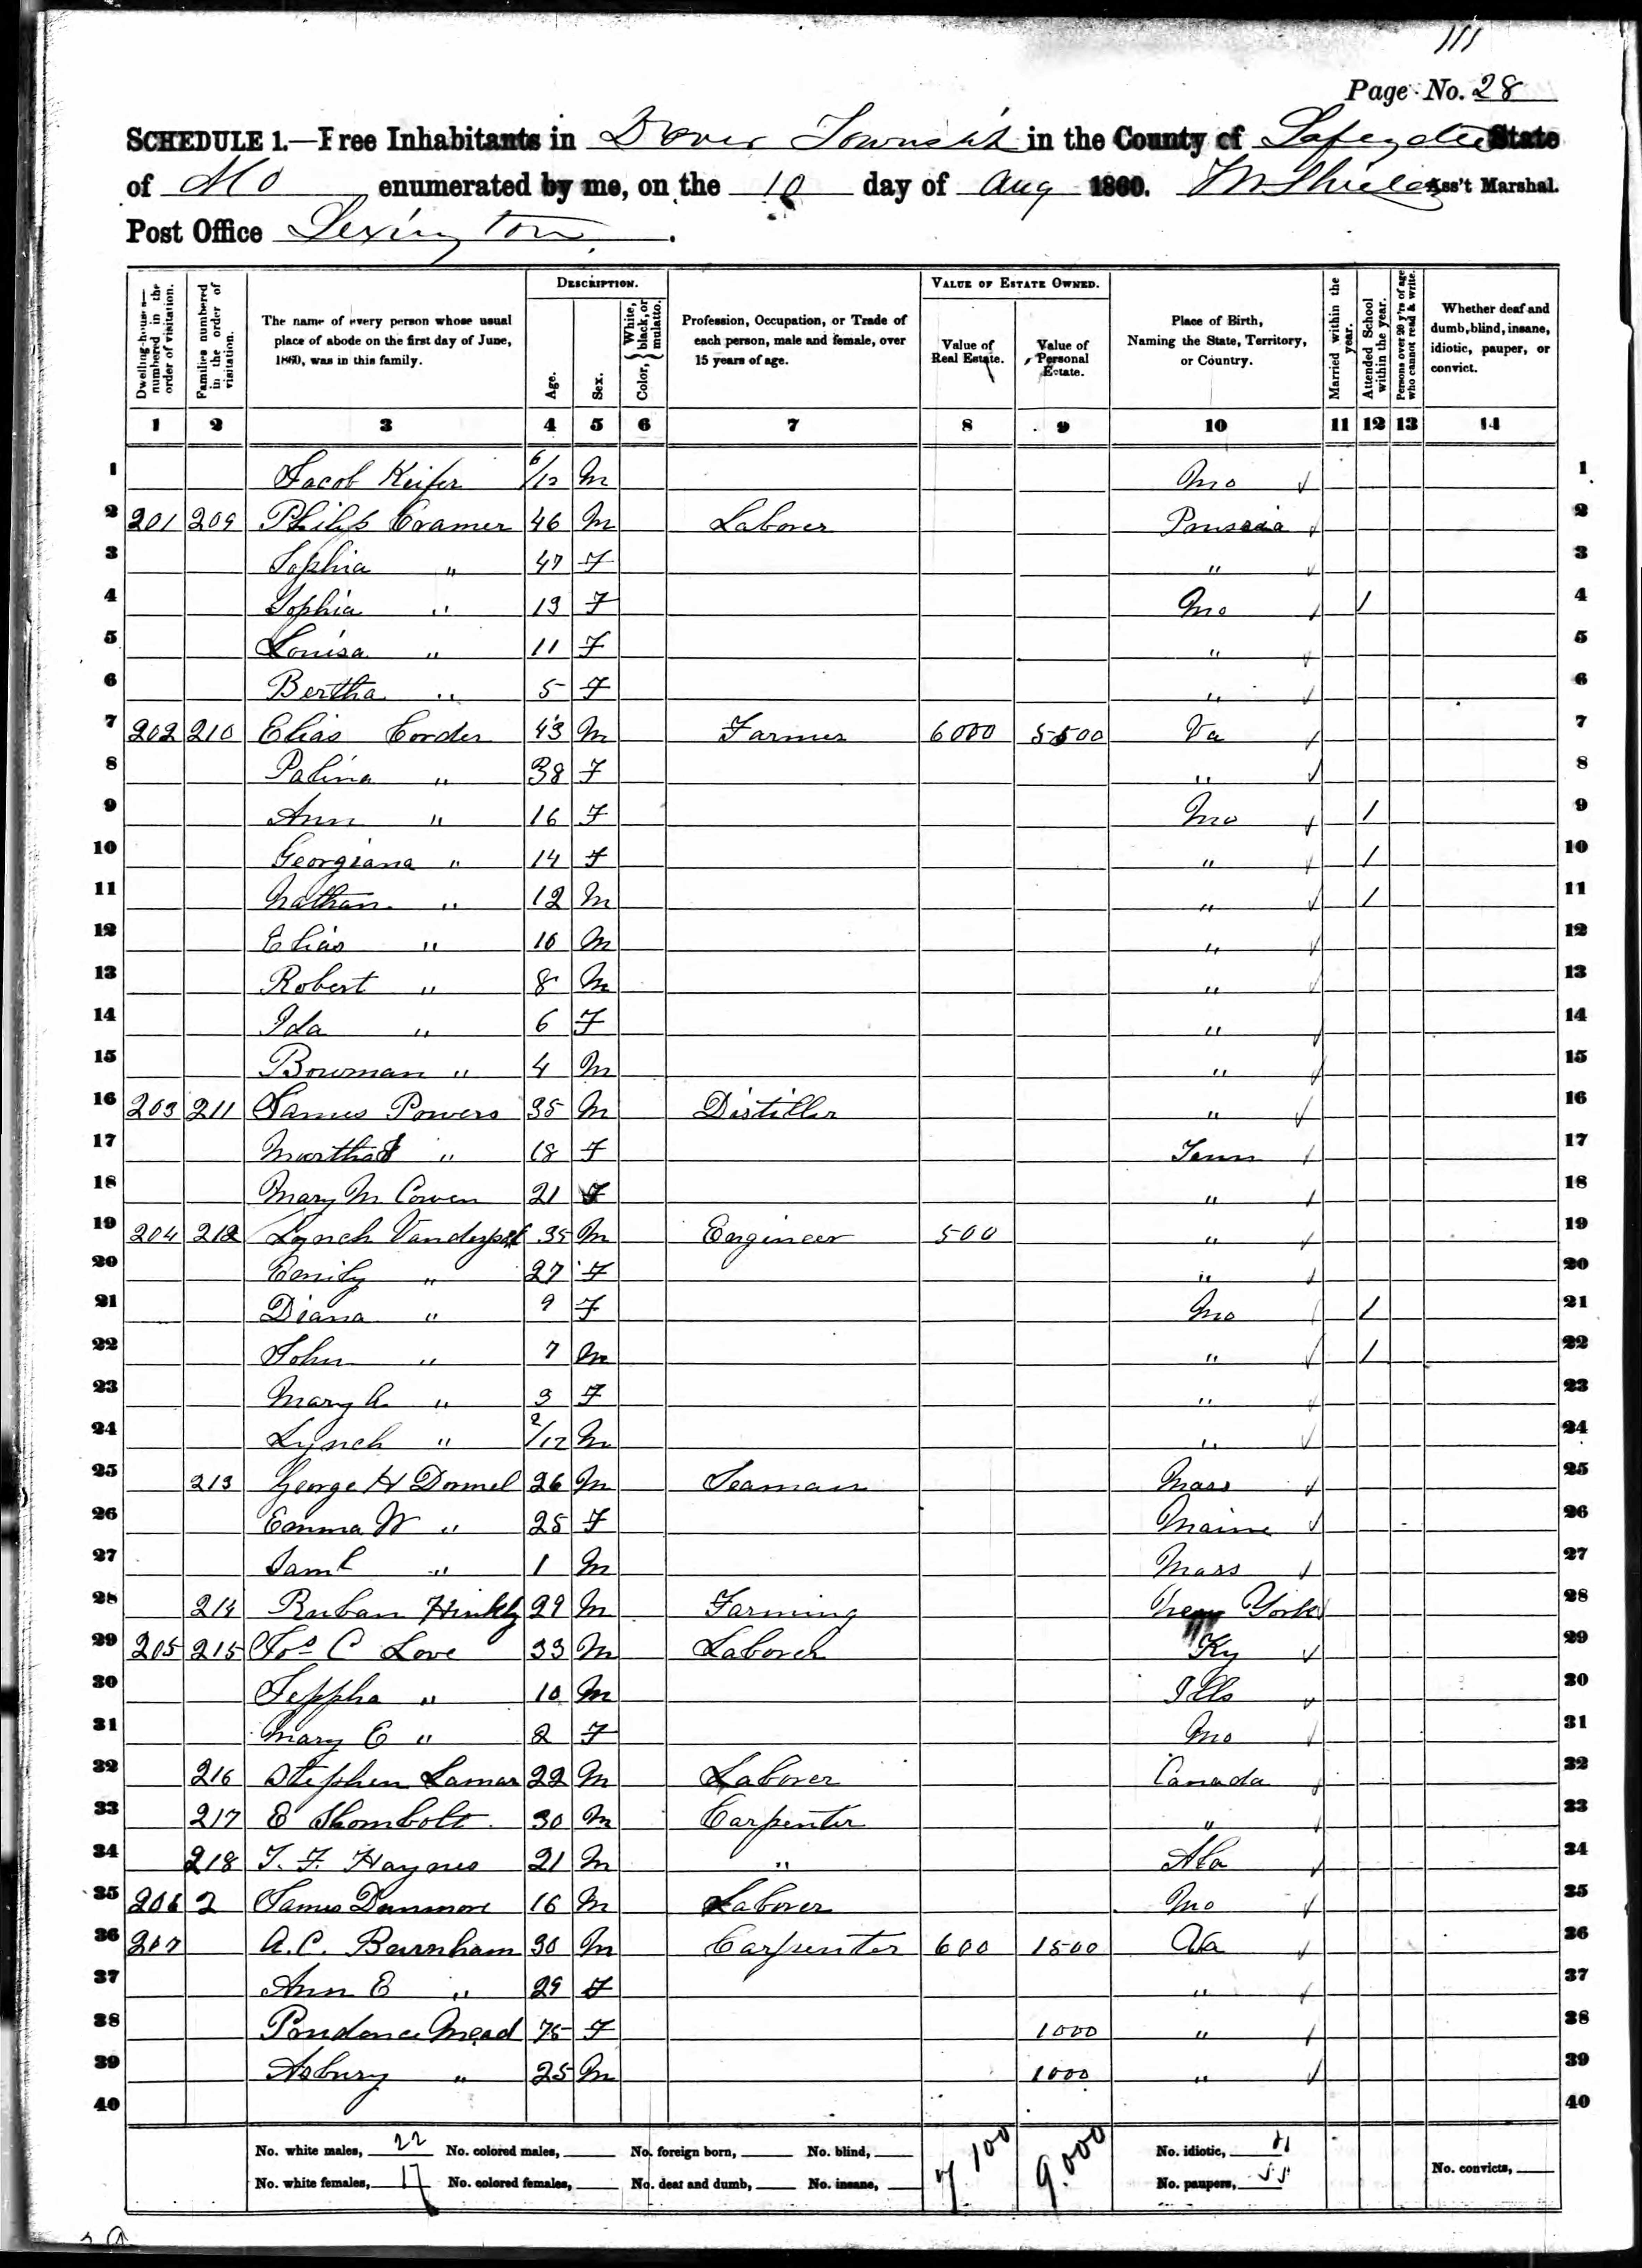 111
Page No. 28
SCHEDULE 1.—Free Inhabitants in Dover Township in the County of Lafayette State
of Mo enumerated by me, on the 10 day of Aug 1860. Ass't Marshal.
Post Office Lexington.
Dwelling-houses—numbered in the order of visitation.
Families numbered in the order of visitation.
The name of every person whose usual place of abode on the first day of June, 1860, was in this family.
DESCRIPTION.
Age.
Sex.
Color, { White, black, or mulatto.
Profession, Occupation, or Trade of each person, male and female, over 15 years of age.
VALUE OF ESTATE OWNED.
Value of Real Estate.
Value of Personal Estate.
Place of Birth, Naming the State, Territory, or Country.
Married within the year.
Attended School within the year.
Persons over 20 y'rs of age who cannot read & write.
Whether deaf and dumb, blind, insane, idiotic, pauper, or convict.
1 2 3 4 5 6 7 8 9 10 11 12 13 14
1 Jacob Keifer 6/12 M Mo 1
2 201 209 Philip Cramer 46 M Laborer Prussia 2
3 Sophia " 47 F " 3
4 Sophia " 13 F Mo / 4
5 Louisa " 11 F " 5
6 Bertha " 5 F " 6
7 202 210 Elias Corder 43 M Farmer 6000 5500 Va 7
8 Palina " 38 F " 8
9 Ann " 16 F Mo / 9
10 Georgiana " 14 F " / 10
11 Nathan " 12 M " / 11
12 Elias " 10 M " 12
13 Robert " 8 M " 13
14 Ida " 6 F " 14
15 Bowman " 4 M " 15
16 203 211 James Powers 35 M Distiller " 16
17 Martha " 18 F Tenn 17
18 Mary M Cowen 21 F " 18
19 204 212 Lynch 35 M Engineer 500 " 19
20 Emily " 27 F " 20
21 Diana " 9 F Mo / 21
22 John " 7 M " / 22
23 Mary A " 3 F " 23
24 Lynch " 2/12 M " 24
25 213 George H Dormel 26 M Seaman Mass 25
26 Emma W " 25 F Maine 26
27 Saml " 1 M Mass 27
28 214 Ruban Hinkly 29 M Farming New York 28
29 205 215 Jos C Love 33 M Laborer Ky 29
30 Jeppha " 10 M Ills 30
31 Mary E " 2 F Mo 31
32 216 Stephen Lamar 22 M Laborer Canada 32
33 217 E Shombolt 30 M Carpenter " 33
34 218 T. F. Haynes 21 M " Ala 34
35 206 2 James Dunmore 16 M Laborer Mo 35
36 207 A. C. Burnham 30 M Carpenter 600 1500 Va 36
37 Ann E " 29 F " 37
38 Prudence Mead 75 F 1000 " 38
39 Asbury " 25 M 1000 " 39
40 40
No. white males, 22 No. colored males, No. foreign born, No. blind, 7100 9.000 No. idiotic,
No. white females, 17 No. colored females, No. deaf and dumb, No. insane, No. paupers, No. convicts,